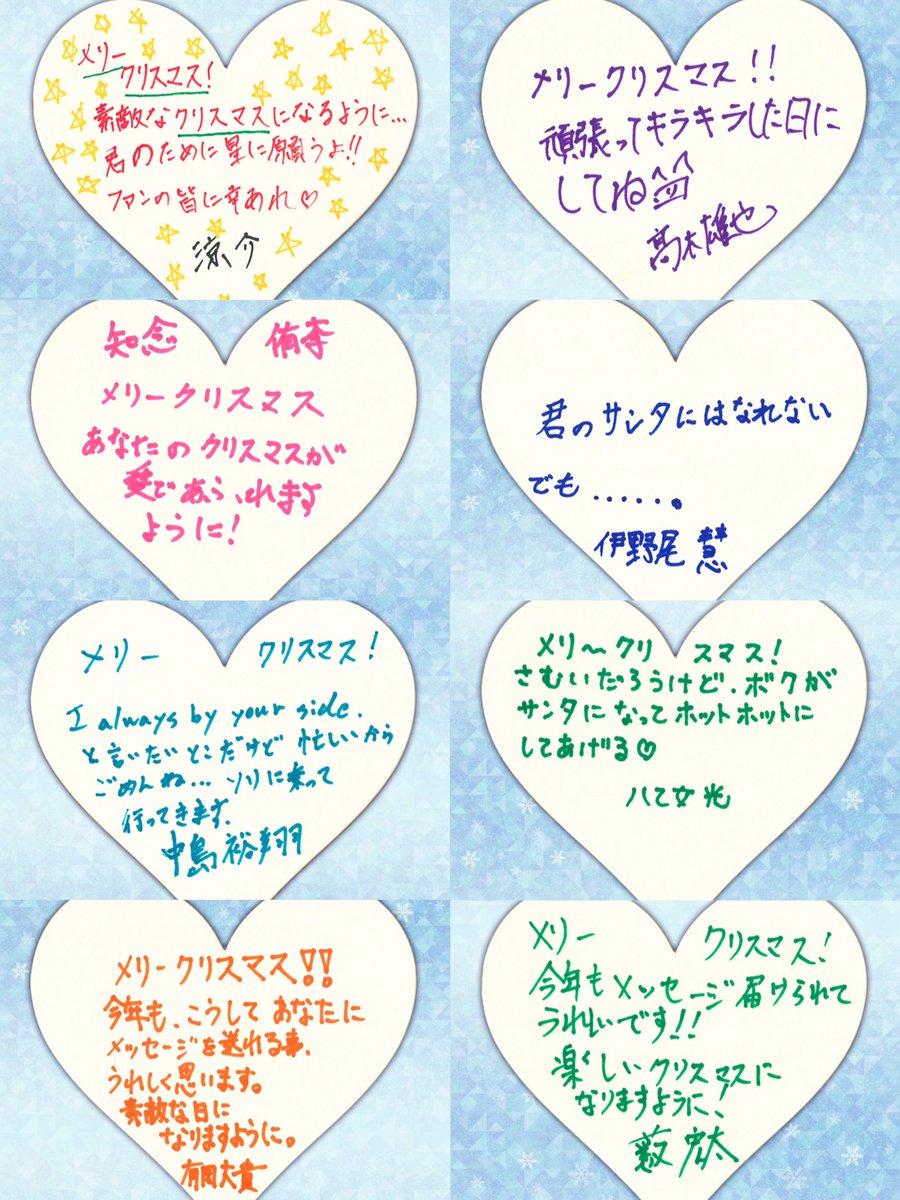 メリー
クリスマス!
素敵なクリスマスになるように…
君のために星に願うよ!!
ファンの皆に幸あれ♡
涼介
メリークリスマス!!
頑張ってキラキラした日に
してね
髙木雄也
知念 侑李
メリークリスマス
あなたのクリスマスが
愛であふれます
ように!
君のサンタにはなれない
でも......。
伊野尾 慧
メリー クリスマス!
I always by your side.
と言いたいとこだけど 忙しいから
ごめんね… ソリに乗って
行ってきます.
中島裕翔
メリ〜クリ スマス!
さむいだろうけど、ボクが
サンタになってホットホットに
してあげる♡
八乙女光
メリークリスマス!!
今年も、こうして あなたに
メッセージを送れる事、
うれしく思います。
素敵な日に
なりますように。
有岡大貴
メリー クリスマス!
今年もメッセージ届けられて
うれしいです!!
楽しいクリスマスに
なりますように!
薮 宏太